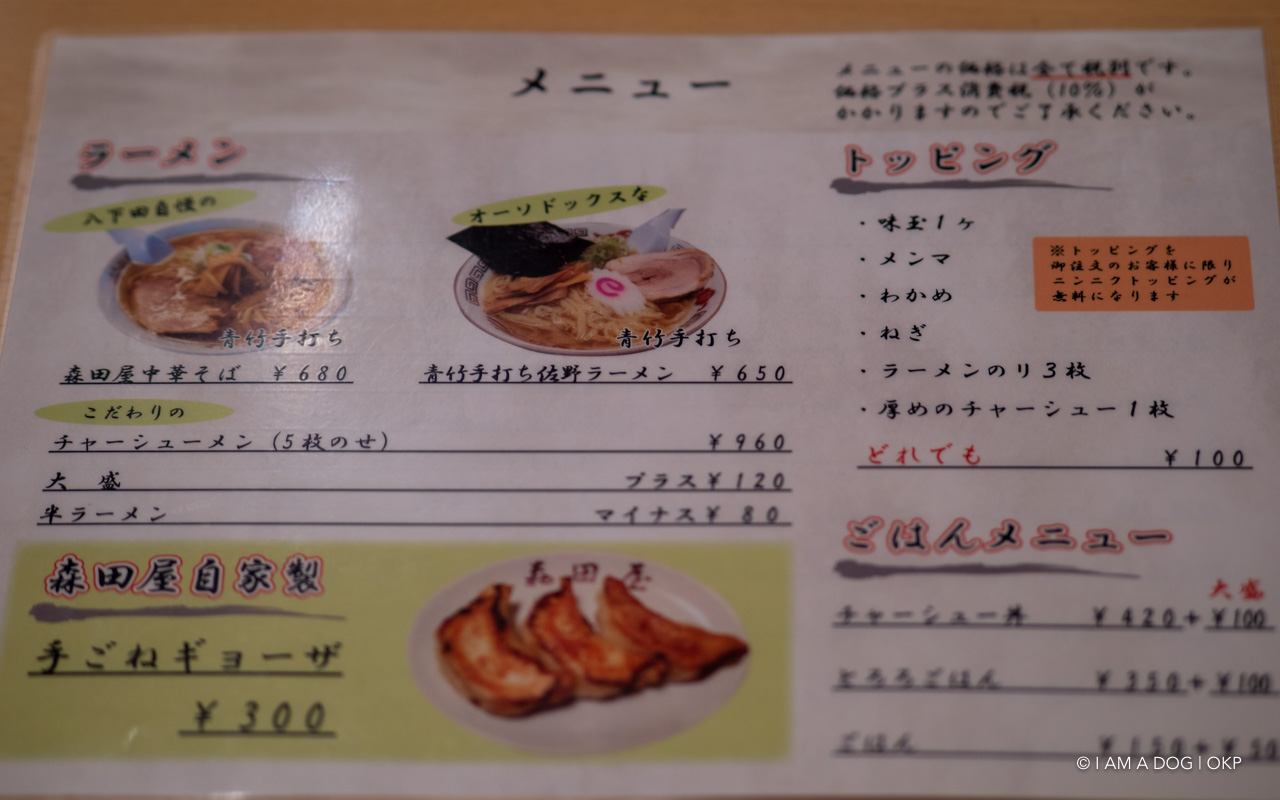 メニュー
メニューの価格は全て税別です。
価格プラス消費税（10%）が
かかりますのでご了承ください。
ラーメン
八下田自慢の
青竹手打ち
森田屋中華そば ￥680
オーソドックスな
青竹手打ち
青竹手打ち佐野ラーメン ￥650
こだわりの
チャーシューメン（5枚のせ） ￥960
大 盛 プラス￥120
半ラーメン マイナス￥ 80
森田屋自家製
手ごねギョーザ
￥300
森田屋
トッピング
・味玉1ヶ
・メンマ
・わかめ
・ねぎ
・ラーメンのリ3枚
・厚めのチャーシュー1枚
どれでも ￥100
※トッピングを
御注文のお客様に限り
ニンニクトッピングが
無料になります
ごはんメニュー
大盛
チャーシュー丼 ￥420+￥100
とろろごはん ￥350+￥100
ごはん ￥150+￥50
© I AM A DOG | OKP